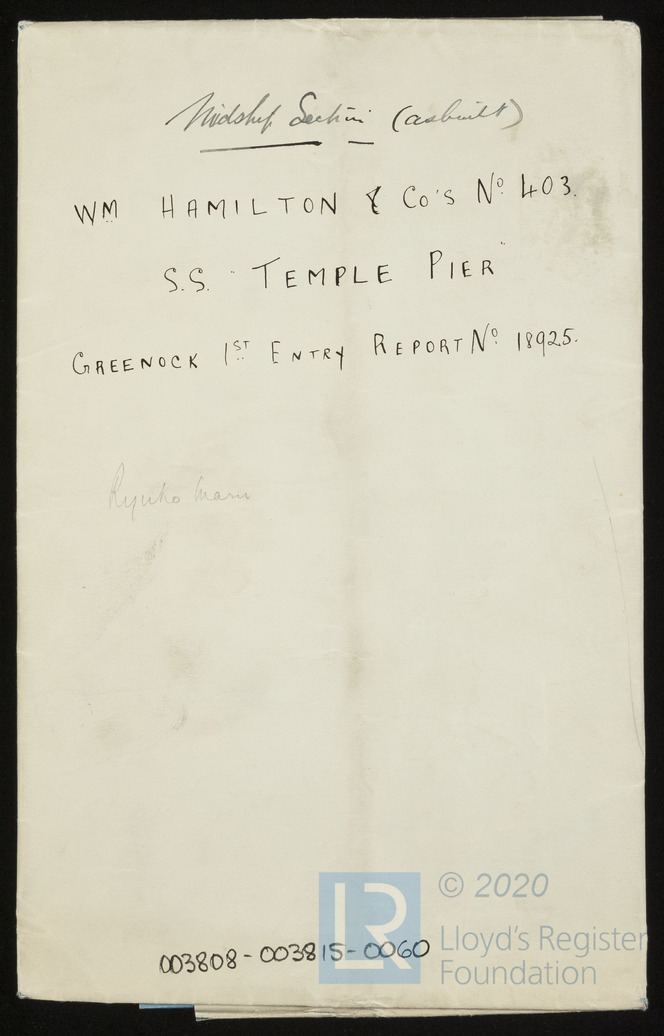 Midship Section (as built)
WM HAMILTON & CO'S No 403.
S.S. "TEMPLE PIER"
GREENOCK 1ST ENTRY REPORT No 18925.
Ryuko Maru
003808-003815-0060
LR
© 2020
Lloyd's Register
Foundation